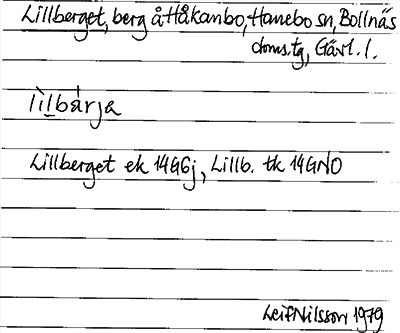 Lillberget, berg å Håkanbo, Hanebo sn, Bollnäs
doms.tg, Gävl. l.
lìlbárja
Lillberget ek 14G6j, Lillb. tk 14GNO
Leif Nilsson 1979